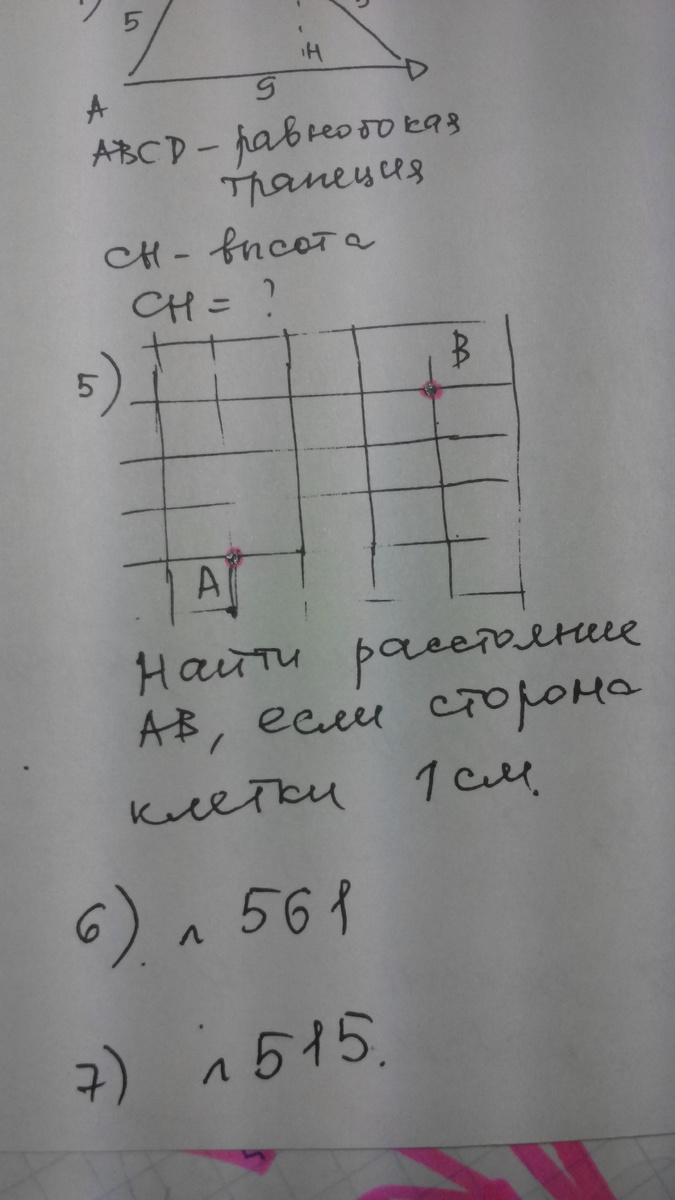 5
H
D
A
9
ABCD - равнобокая
трапеция
CH - высота
CH = ?
5)
B
A
Найти расстояние
AB, если сторона
клетки 1 см.
6) л 561
7) л 515.